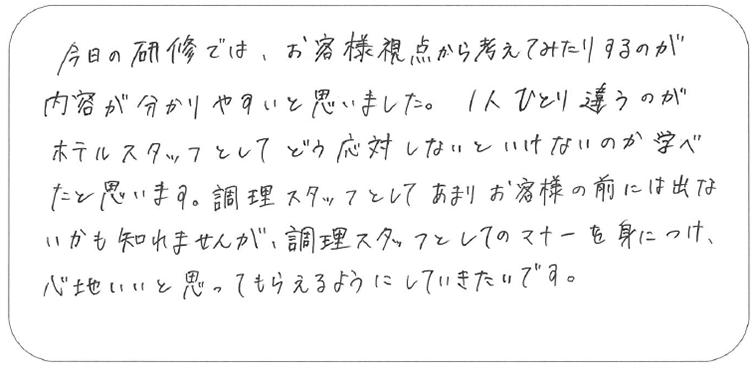 今日の研修では、お客様視点から考えてみたりするのが
内容が分かりやすいと思いました。1人ひとり違うのが
ホテルスタッフとしてどう応対しないといけないのか学べ
たと思います。調理スタッフとしてあまりお客様の前には出な
いかも知れませんが、調理スタッフとしてのマナーを身につけ、
心地いいと思ってもらえるようにしていきたいです。